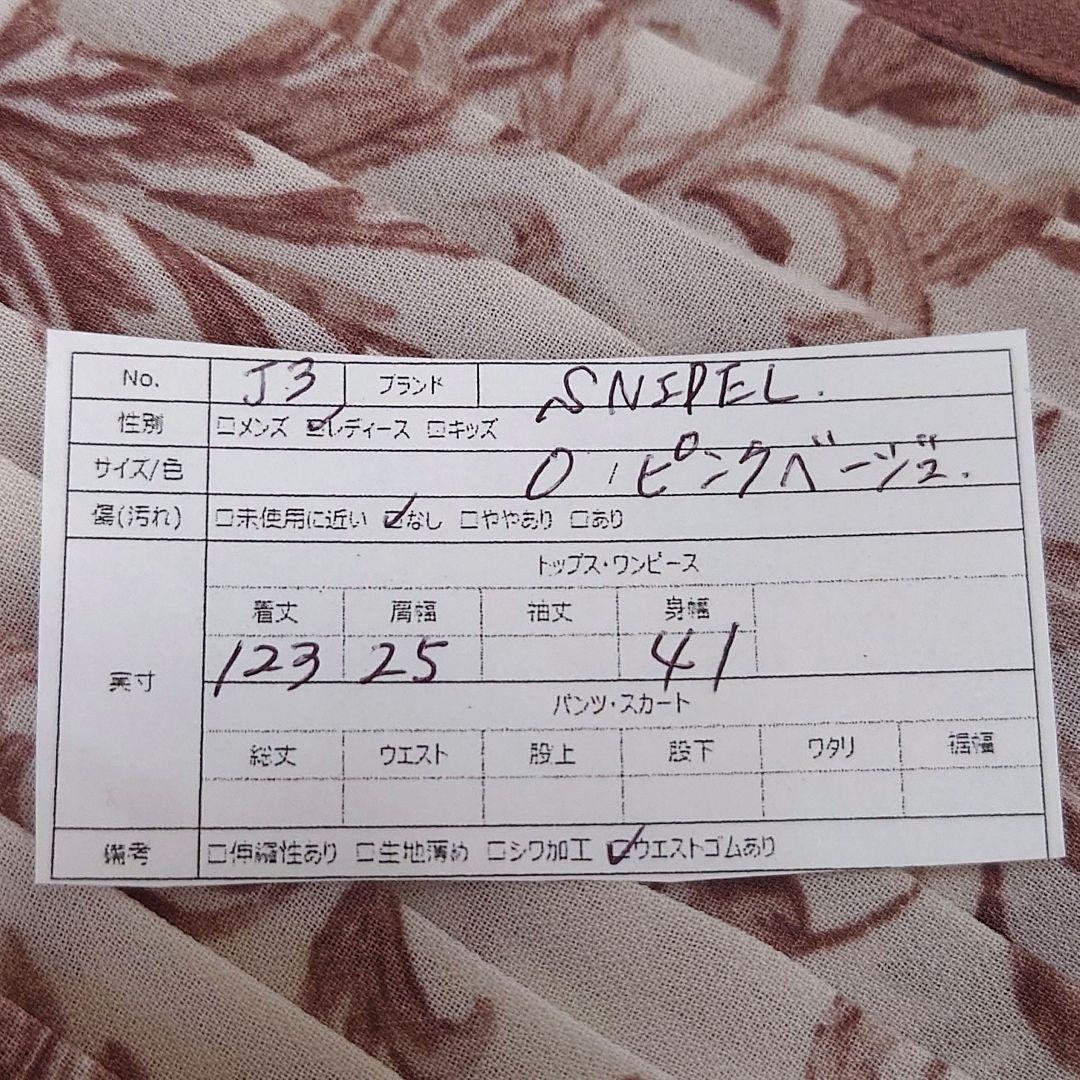 No. J3 ブランド SNIDEL.
性別 □メンズ ☑レディース □キッズ
サイズ/色 0 / ピンクベージュ.
傷(汚れ) □未使用に近い ☑なし □ややあり □あり
トップス・ワンピース
着丈 肩幅 袖丈 身幅
実寸 123 25 41
パンツ・スカート
総丈 ウエスト 股上 股下 ワタリ 裾幅
備考 □伸縮性あり □生地薄め □シワ加工 ☑ウエストゴムあり